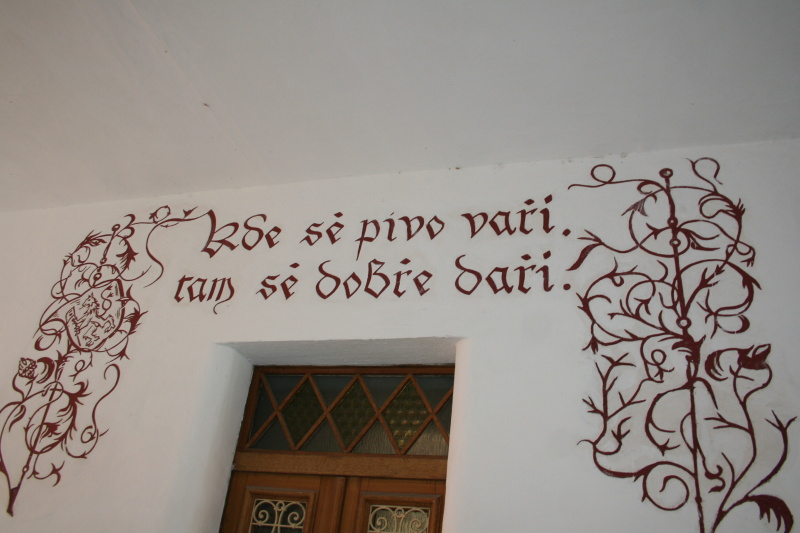 kde sė pivo vaří.
tam sė dobře daří.